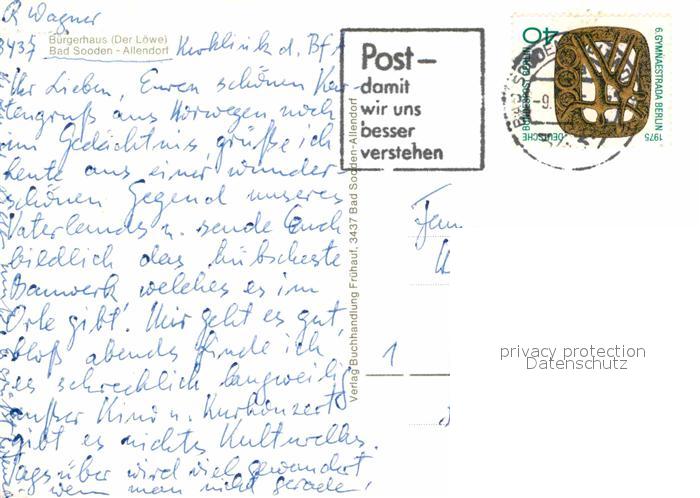 R Wagner
Bürgerhaus (Der Löwe)
3437 Bad Sooden - Allendorf Kurklinik d. BfA
Ihr Lieben, Euren schönen Kar-
tengruß aus Norwegen noch
im Gedächtnis grüße ich
heute aus einer wunder
schönen Gegend unseres
Vaterlandes u. sende Euch
bildlich das hübscheste
Bauwerk welches es im
Orte gibt. Mir geht es gut,
bloß abends finde ich
es schrecklich langweilig
außer Kino u. Kurkonzert
gibt es nichts Kulturelles.
Tagsüber wird viel gewandert
wenn man nicht gerade
Verlag Buchhandlung Frühauf, 3437 Bad Sooden-Allendorf
Post –
damit
wir uns
besser
verstehen
40
DEUTSCHE BUNDESPOST BERLIN
6. GYMNAESTRADA BERLIN 1975
-9.
Fam
1
privacy protection
Datenschutz